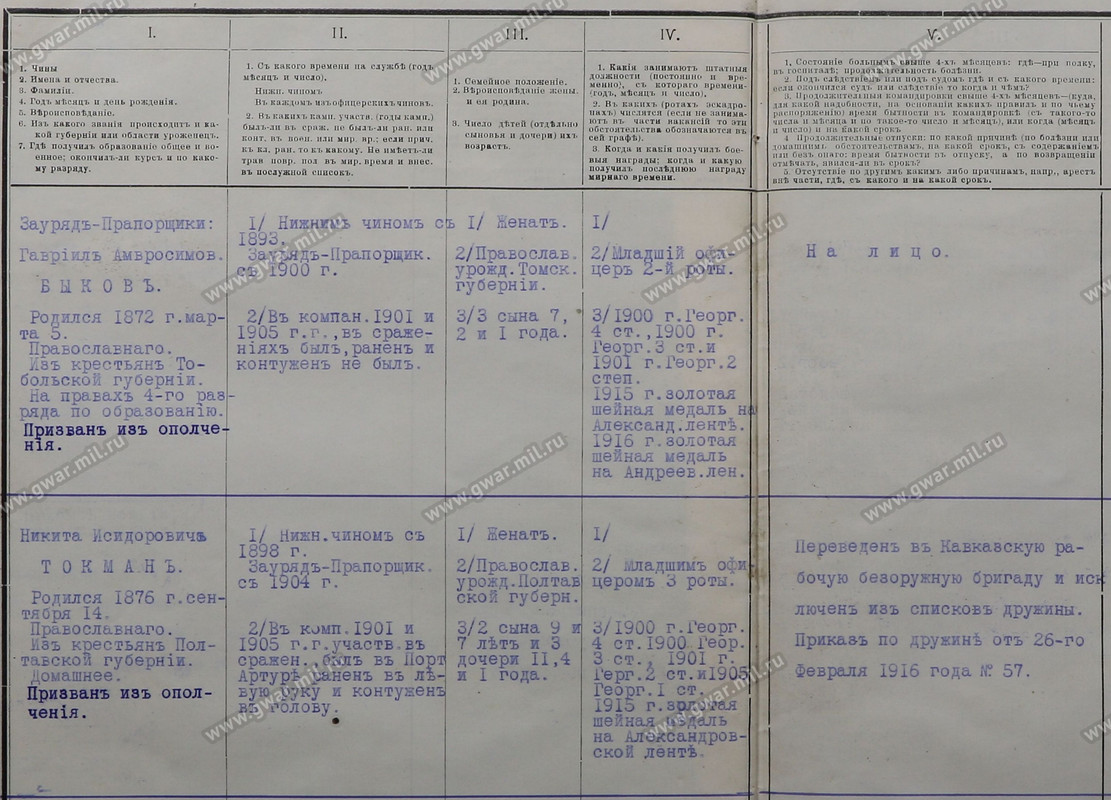 I.
1. Чины
2. Имена и отчества.
3. Фамиліи.
4. Годъ мѣсяцъ и день рожденія.
5. Вѣроисповѣданіе.
6. Изъ какого званія происходитъ и ка-
кой губерніи или области уроженецъ.
7. Гдѣ получилъ образованіе общее и во-
енное; окончилъ-ли курсъ и по како-
му разряду.
II.
1. Съ какого времени на службѣ (годъ
мѣсяцъ и число),
Нижн. чиномъ
Въ каждомъ изъ офицерскихъ чиновъ.
2. Въ какихъ камп. участв. (годы камп.)
былъ-ли въ сраж. не былъ-ли ран. или
конт. въ воен. ил. мир. вр.; если прич.
къ кл. ран. то къ какому. Не имѣетъ-ли
трав повр. пол. въ мир. время и внес.
въ послужной списокъ.
III.
1. Семейное положеніе.
2. Вѣроисповѣданіе жены
и ея родина.
3. Число дѣтей (отдѣльно
сыновья и дочери) ихъ
возрастъ.
IV.
1. Какія занимаютъ штатныя
должности (постоянно и вре-
менно), съ котораго времени-
(годъ, мѣсяцъ и число).
2. Въ какихъ (ротахъ эскадро-
нахъ) числятся (если не занима-
ютъ въ части вакансій то эти
обстоятельства обозначаются въ
сей графѣ).
3. Когда и какія получилъ бое-
выя награды; когда и какую
получилъ послѣднюю награду
мирнаго времени.
V.
1. Состояніе больнымъ свыше 4-хъ мѣсяцевъ: гдѣ—при полку,
въ госпиталѣ; продолжительность болѣзни.
2. Подъ слѣдствіемъ или подъ судомъ гдѣ и съ какого времени:
если окончился судъ или слѣдствіе то когда и чѣмъ?
3. Продолжительныя командировки свыше 4-хъ мѣсяцевъ—(куда,
для какой надобности, на основаніи какихъ правилъ и по чьему
распоряженію) время бытность въ командировкѣ (съ такого-то
числа и мѣсяца и по такое-то число и мѣсяцъ), или когда (мѣсяцъ
и число) и на какой срокъ.
4 Продолжительные отпуски: по какой причинѣ (по болѣзни или
домашнимъ обстоятельствамъ, на какой срокъ, съ содержаніемъ
или безъ онаго: время бытность въ отпуску, а по возвращеніи
отмѣчать, явился-ли въ срокъ?
5. Отсутствіе по другимъ какимъ либо причинамъ, напр., арестъ
внѣ части, гдѣ, съ какого и на какой срокъ.
Заурядъ-Прапорщики:
Гавріилъ Амвросимов.
БЫКОВЪ.
Родился 1872 г.мар-
та 5.
Православнаго.
Изъ крестьянъ То-
больской губерніи.
На правахъ 4-го раз-
ряда по образованію.
Призванъ изъ ополче-
нія.
I/ Нижнимъ чиномъ съ
1893.
Заурядъ-Прапорщик.
съ 1900 г.
2/Въ компан.1901 и
1905 г.г.,въ сраже-
ніяхъ былъ,раненъ и
контуженъ не былъ.
I/ Женатъ.
2/Православ.
урожд.Томск.
губерніи.
3/3 сына 7,
2 и I года.
I/
2/Младшій офи-
церъ 2-й роты.
3/1900 г.Георг.
4 ст.,1900 г.
Георг.3 ст.и
1901 г.Георг.2
степ.
1915 г.золотая
шейная медаль на
Александ.лентѣ.
1916 г.золотая
шейная медаль
на Андреев.лен.
На лицо.
Никита Исидоровичъ
ТОКМАНЪ.
Родился 1876 г.сен-
тября 14.
Православнаго.
Изъ крестьянъ Пол-
тавской губерніи.
Домашнее.
Призванъ изъ опол-
ченія.
I/ Нижн.чиномъ съ
1898 г.
Заурядъ-Прапорщик.
съ 1904 г.
2/Въ комп.1901 и
1905 г.г.участв.въ
сражен. былъ въ Порт
Артурѣ раненъ въ лѣ-
вую руку и контуженъ
въ голову.
I/ Женатъ.
2/Православ.
урожд.Полтав
ской губерн.
3/2 сына 9 и
7 лѣтъ и 3
дочери II,4
и I года.
I/
2/ Младшимъ офи-
церомъ 3 роты.
3/1900 г.Георг.
4 ст.1900 Геор.
3 ст., 1901 г.
Герг.2 ст.и1905
Георг.I ст.
1915 г.золотая
шейная медаль
на Александров-
ской лентѣ.
Переведенъ въ Кавказскую ра-
бочую безоружную бригаду и иск
люченъ изъ списковъ дружины.
Приказъ по дружинѣ отъ 26-го
Февраля 1916 года № 57.
www.gwar.mil.ru